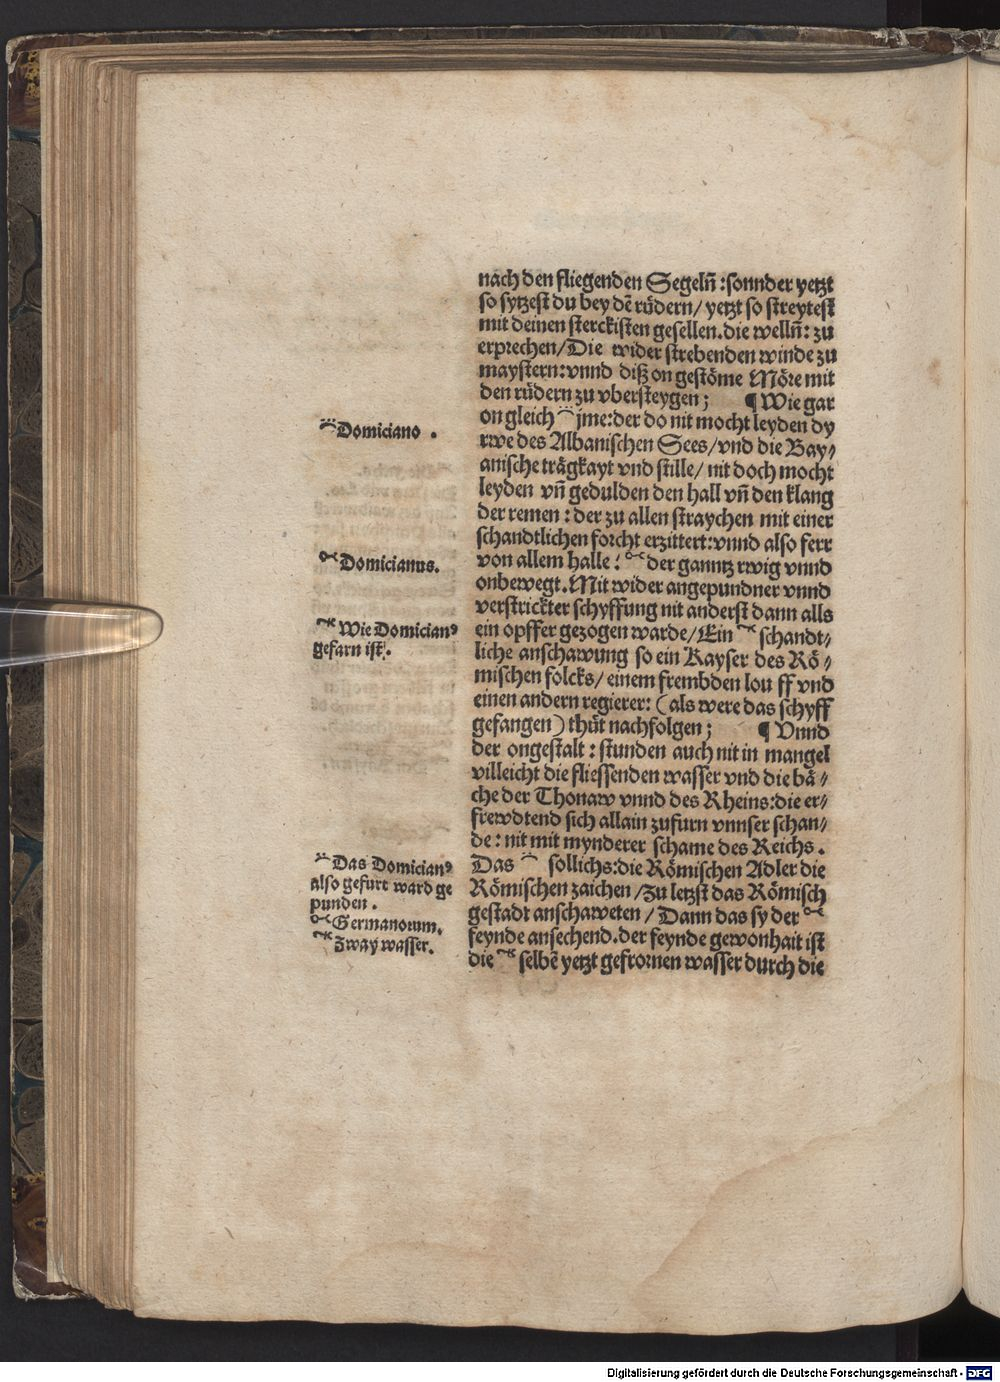 nach den fliegenden Segelñ : sonnder yetzt
so sytzest du bey dē růdern / yetzt so streytest
mit deinen sterckisten gesellen . die wellñ : zu
erprechen / Die wider strebenden winde zu
maystern : vnnd diß on gestöme Möre mit
den růdern zu vbersteygen ; ¶ Wie gar
on gleich jme : der do nit mocht leyden dy
rwe des Albanischen Sees / vnd die Bay⸗
anische trägkayt vnd stille / nit doch mocht
leyden vñ gedulden den hall vñ den klang
der remen : der zu allen straychen mit einer
schandtlichen forcht erzittert : vnnd also ferr
von allem halle : der ganntz rwig vnnd
onbewegt . Mit wider angepundner vnnd
verstrickter schyffung nit anderst dann alls
ein opffer gezogen warde / Ein schandt⸗
liche anschawung so ein Kayser des Rö⸗
mischen folcks / einem frembden lou ff vnd
einen andern regierer : ( als were das schyff
gefangen ) thůt nachfolgen ; ¶ Vnnd
der ongestalt : stunden auch nit in mangel
villeicht die fliessenden wasser vnd die bä⸗
che der Thonaw vnnd des Rheins : die er⸗
frewdtend sich allain zufurn vnnser schan⸗
de : nit mit mynderer schame des Reichs .
Das sollichs : die Römischen Adler die
Römischen zaichen / zu letzst das Römisch
gestadt anschaweten / Dann das sy der
feynde ansechend . der feynde gewonhait ist
die selbē yetzt gefrornen wasser durch die
Domiciano .
Domicianus .
Wie Domicianꝰ
gefarn ist .
Das Domicianꝰ
also gefurt ward ge
punden .
Germanorum .
Zway wasser .
Digitalisierung gefördert durch die Deutsche Forschungsgemeinschaft - DFG